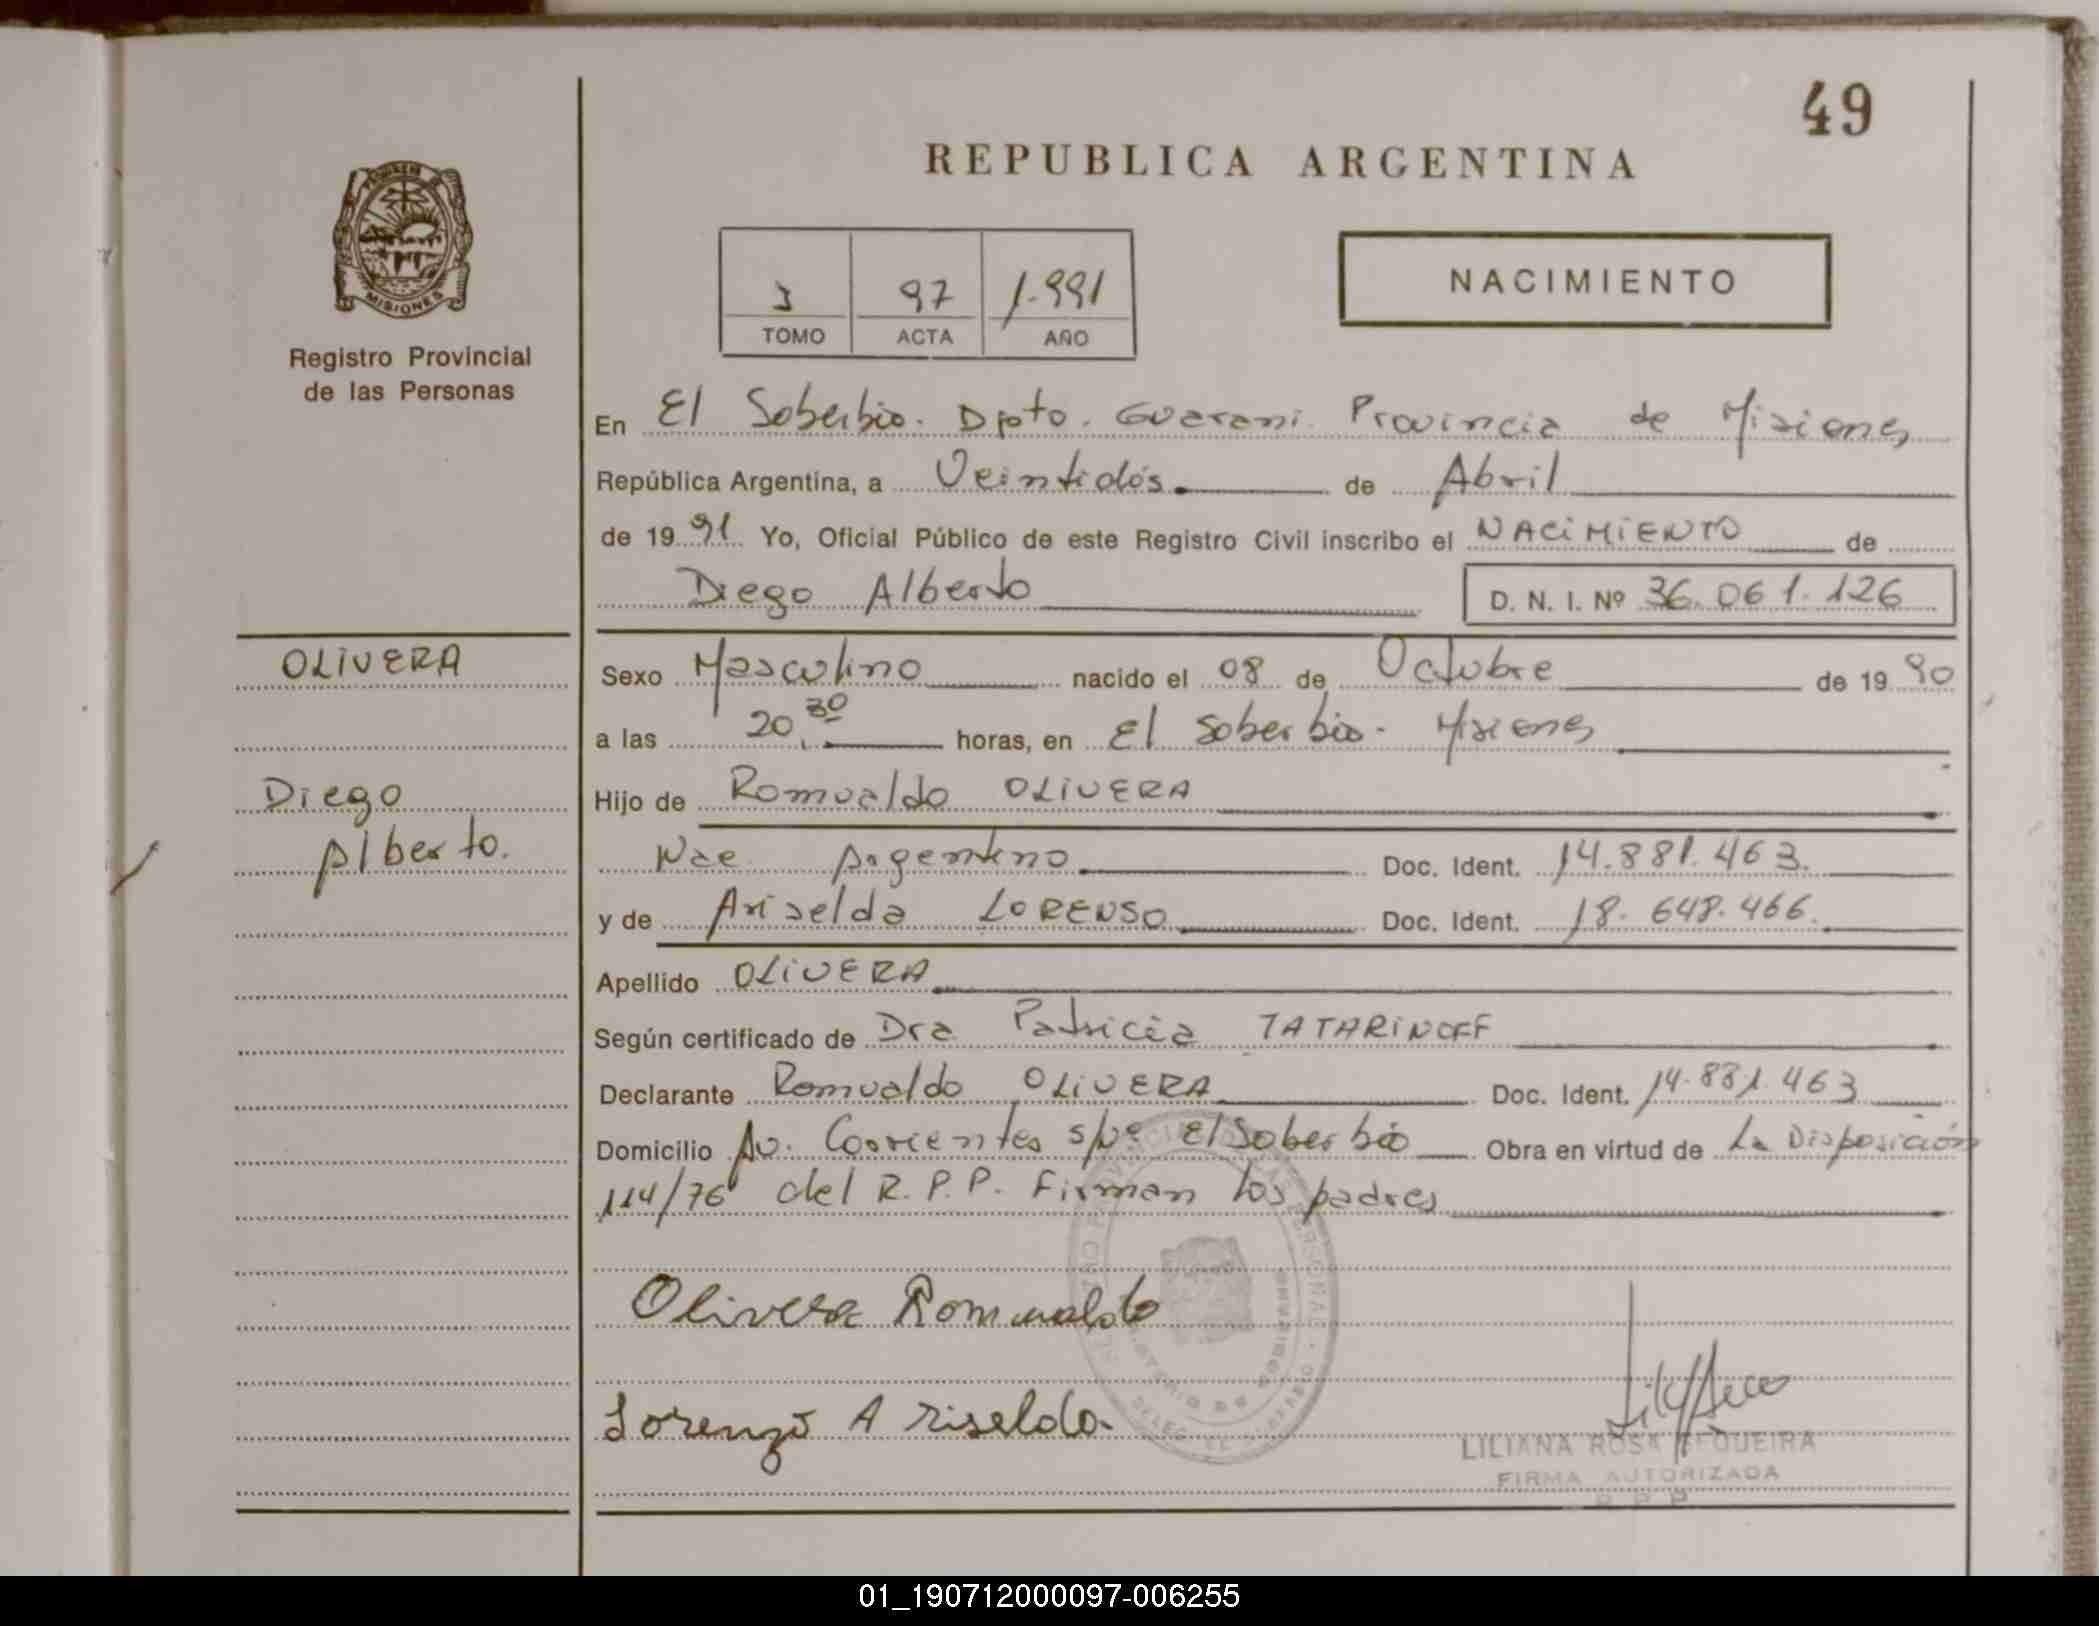 49
REPUBLICA ARGENTINA
MISIONES
Registro Provincial
de las Personas
97 1.991
TOMO ACTA AÑO
NACIMIENTO
En El Soberbio. Dpto. Guarani. Provincia de Misiones
República Argentina, a Veintidós. de Abril
de 1991 Yo, Oficial Público de este Registro Civil inscribo el NACIMIENTO de
Diego Alberto D. N. I. Nº 36.061.126
OLIVERA
Diego
Alberto.
Sexo Masculino nacido el 08 de Octubre de 1990
a las 20.30 horas, en El Soberbio. Misiones
Hijo de Romualdo OLIVERA
Nac Argentino Doc. Ident. 14.881.463.
y de Ariselda LORENSO Doc. Ident. 18.648.466.
Apellido OLIVERA
Según certificado de Dra Patricia TATARINOFF
Declarante Romualdo OLIVERA Doc. Ident. 14.881.463
Domicilio Av. Corrientes s/nº El Soberbio Obra en virtud de La Disposición
114/76 del R.P.P. Firman los padres
Olivera Romualdo
Lorenzo Ariselda
LILIANA ROSA SEQUEIRA
FIRMA AUTORIZADA
R P P
01_190712000097-006255